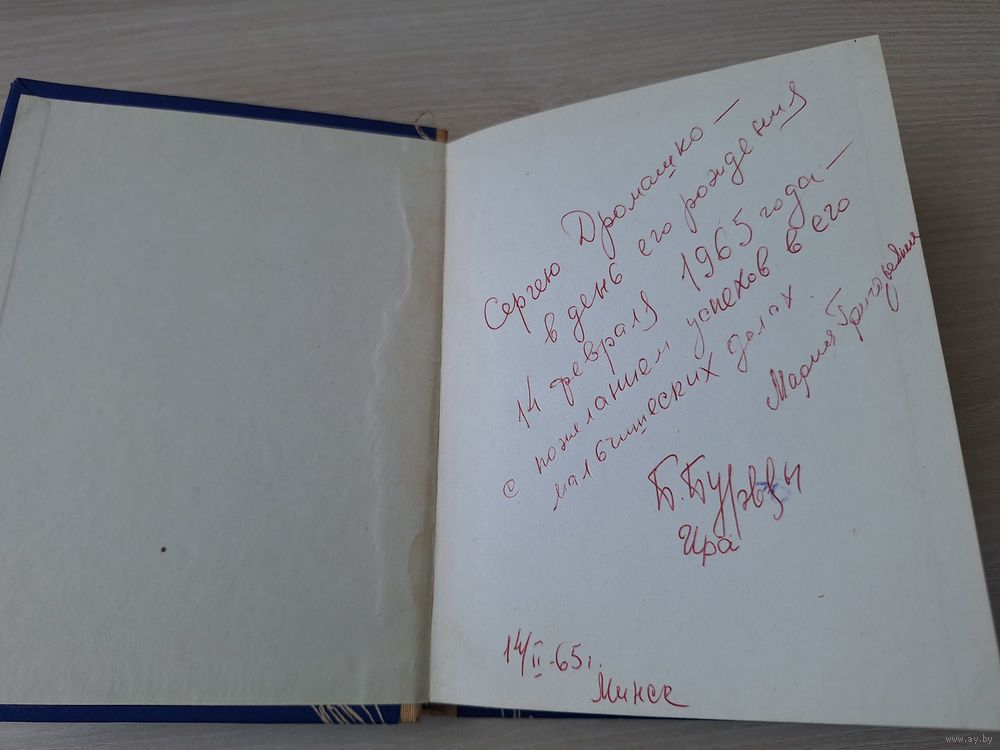 Сергею Дромашко –
в день его рождения
14 февраля 1965 года –
с пожеланием успехов в его
мальчишеских делах.
Мария Григорьевна
Б. Бурэвзы
Ира
14/II-65 г.
Минск
www.ay.by